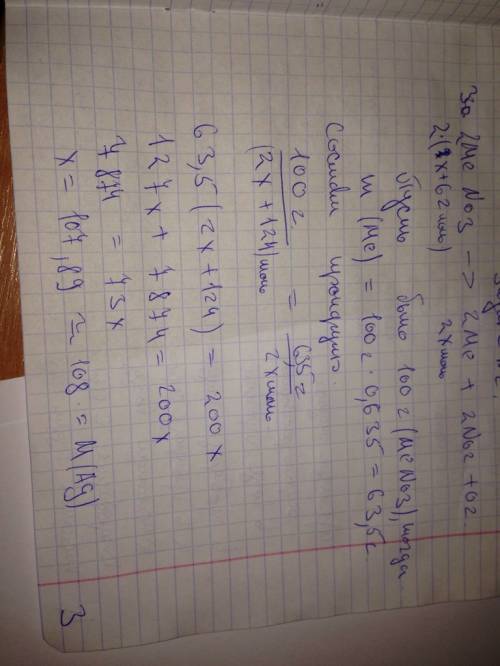 2MeNO3 -> 2Me + 2NO2 + O2
2·(x+62 моль) 2x моль
Пусть было 100 г (MeNO3), тогда
m (Me) = 100г · 0,635 = 63,5г
Составим пропорцию.
100 г / (2x + 124) моль = 63,5 г / 2x моль
63,5 (2x + 124) = 200x
127x + 7874 = 200x
7874 = 73x
x = 107,89 ≃ 108 = M(Ag)
3